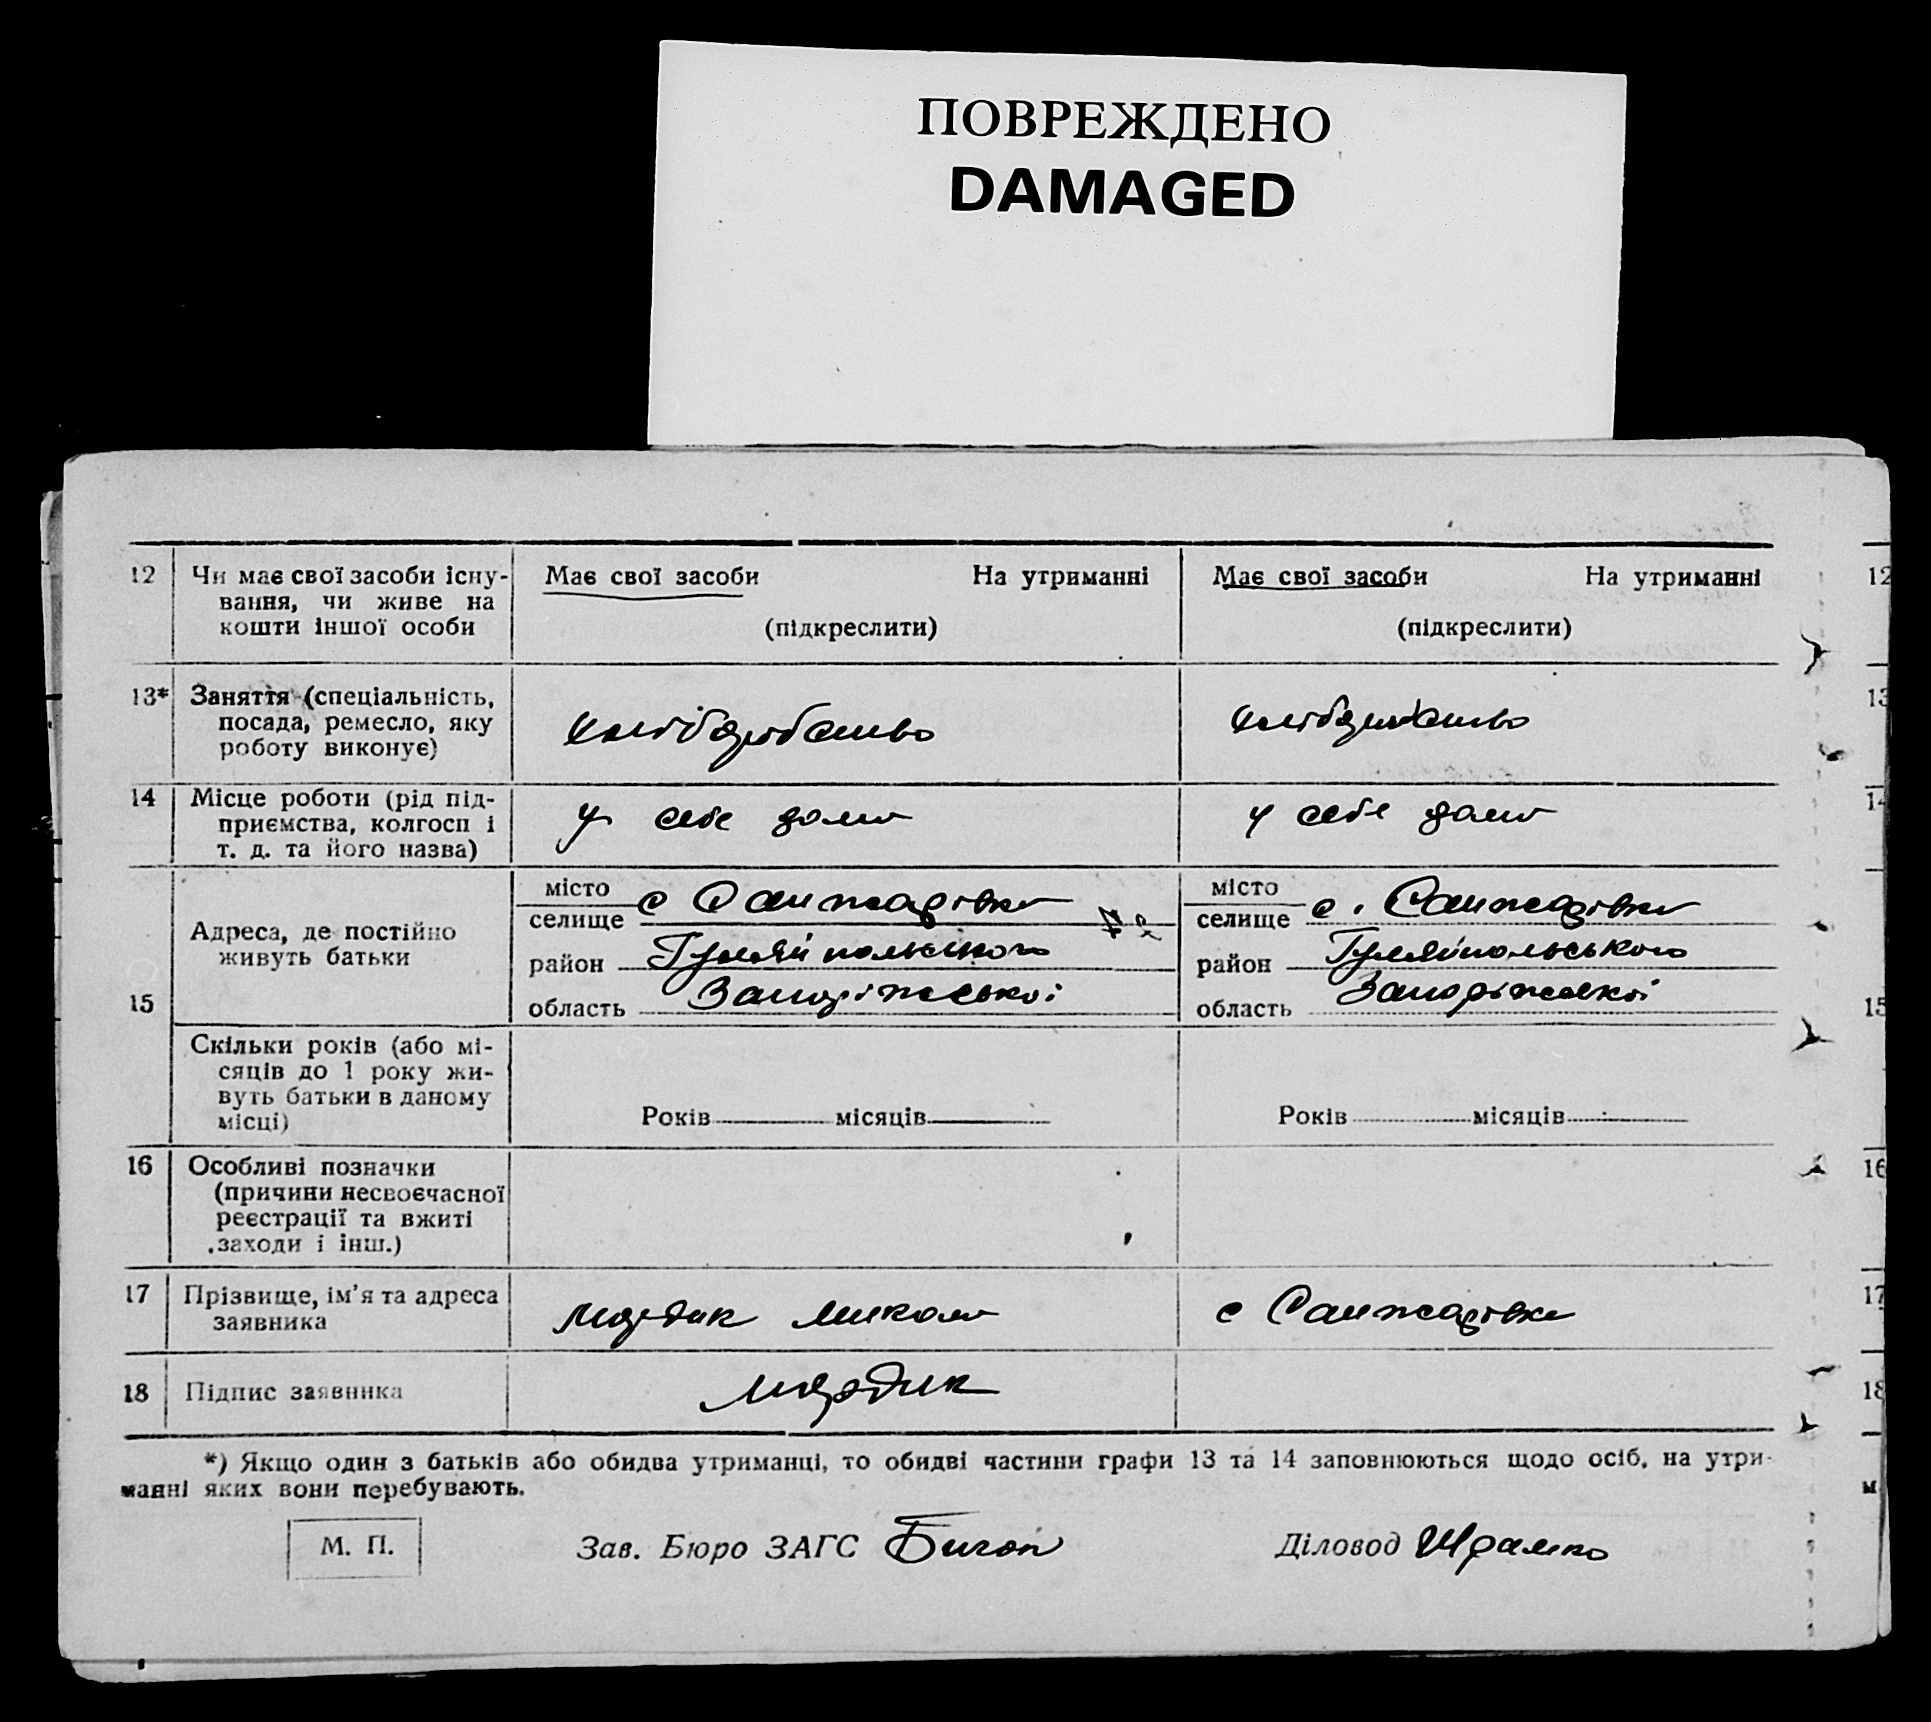 ПОВРЕЖДЕНО
DAMAGED
12 Чи має свої засоби існу-
вання, чи живе на
кошти іншої особи
Має свої засоби На утриманні
(підкреслити)
Має свої засоби На утриманні
(підкреслити)
12
13* Заняття (спеціальність,
посада, ремесло, яку
роботу виконує)
13
14 Місце роботи (рід під-
приємства, колгосп і
т. д. та його назва)
у себе дома
у себе дома
14
15 Адреса, де постійно
живуть батьки
місто
селище с Санжарівка
район Гуляйпольського
область Запоріжської
місто
селище с. Санжарівка
район Гуляйпольського
область Запоріжської
15
Скільки років (або мі-
сяців до 1 року жи-
вуть батьки в даному
місці)
Років місяців
Років місяців
16 Особливі позначки
(причини несвоєчасної
реєстрації та вжиті
заходи і інш.)
16
17 Прізвище, ім'я та адреса
заявника
Микола
с Санжарівка
17
18 Підпис заявника
18
*) Якщо один з батьків або обидва утриманці, то обидві частини графи 13 та 14 заповнюються щодо осіб, на утри-
манні яких вони перебувають.
м
М. П.
Зав. Бюро ЗАГС
Діловод Шрамко